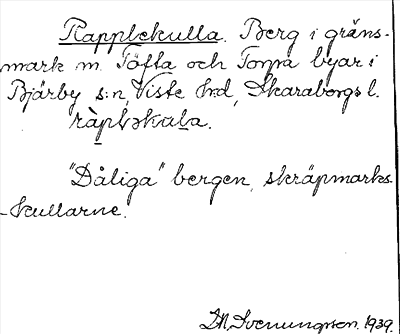 Rapplekulla. Berg i gräns-
mark m. Töfta och Torpa byar i
Bjärby s:n, Viste hd, Skaraborgs l.
"Dåliga" bergen, skräpmarks-
-kullarne.
Svenungson. 1939.